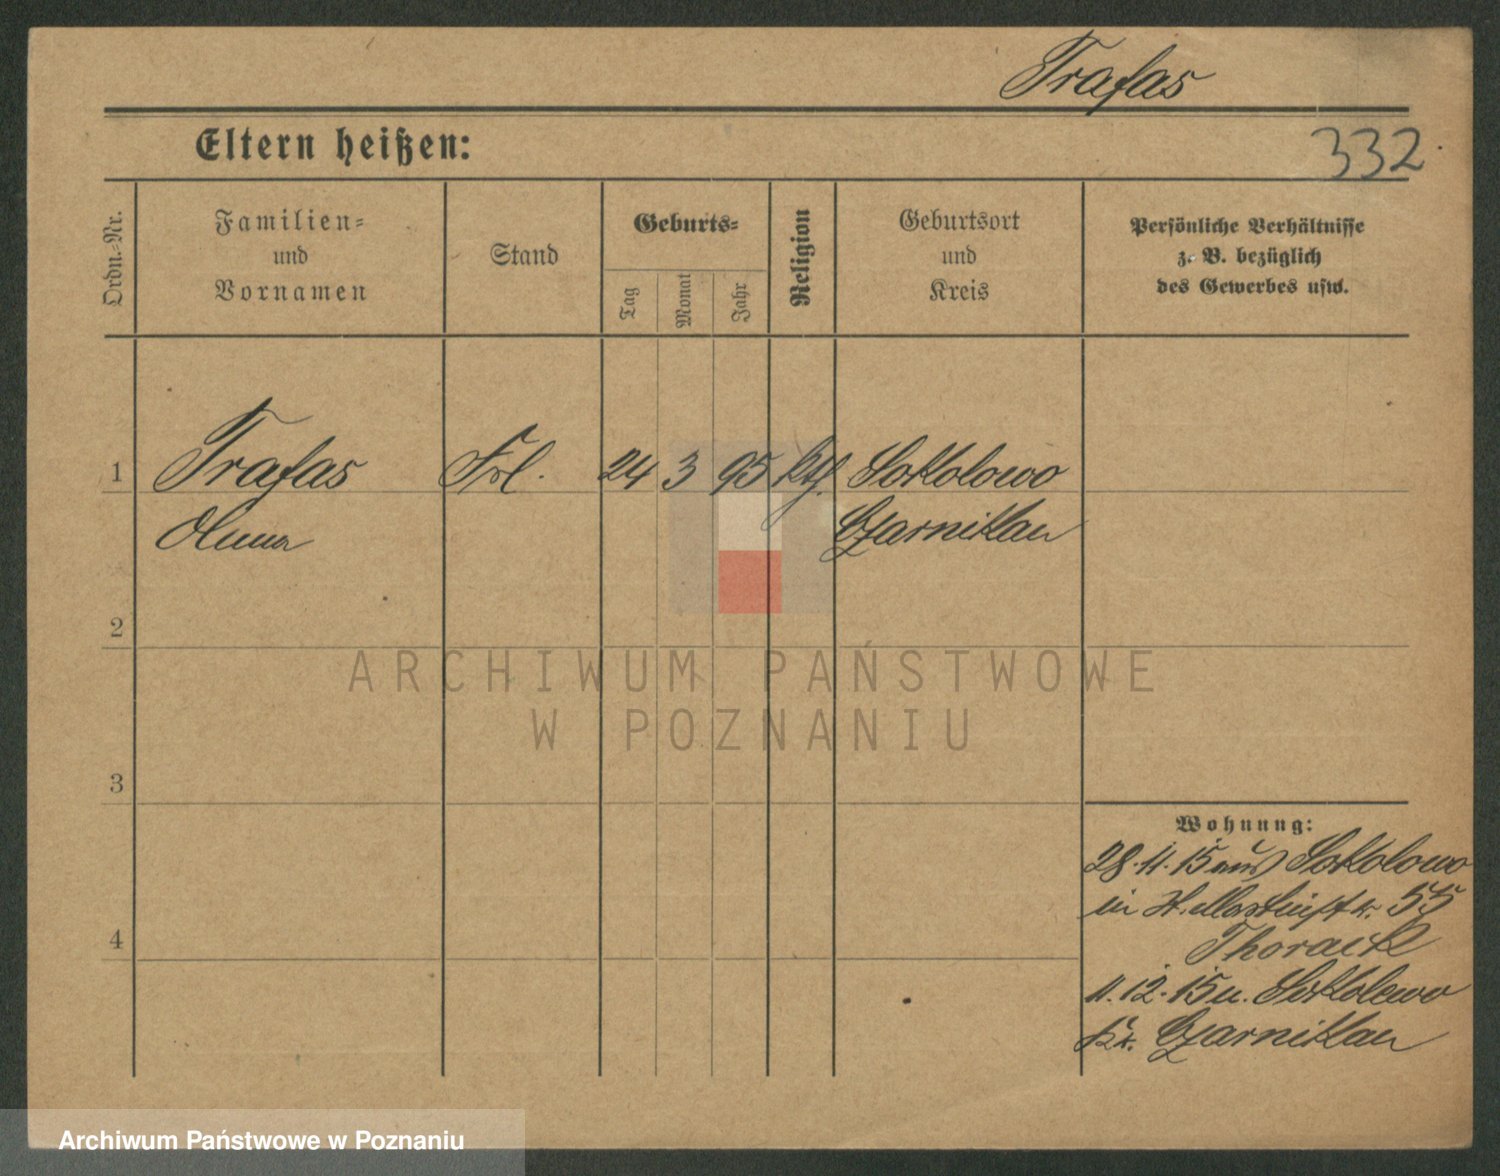 Trafas
Eltern heißen:
332
Ordn.-Nr.
Familien-
und
Vornamen
Stand
Geburts-
Tag
Monat
Jahr
Religion
Geburtsort
und
Kreis
Persönliche Verhältnisse
z. B. bezüglich
des Gewerbes usw.
1
Trafas Frl. 24 3 95 kth. Sokolowo
Anna Czarnikau
2
3
4
Wohnung:
28. 11. 15 aus Sokolowo
in 55
11. 12. 15 n. Sokolowo
Kr. Czarnikau
ARCHIWUM PAŃSTWOWE
W POZNANIU
Archiwum Państwowe w Poznaniu